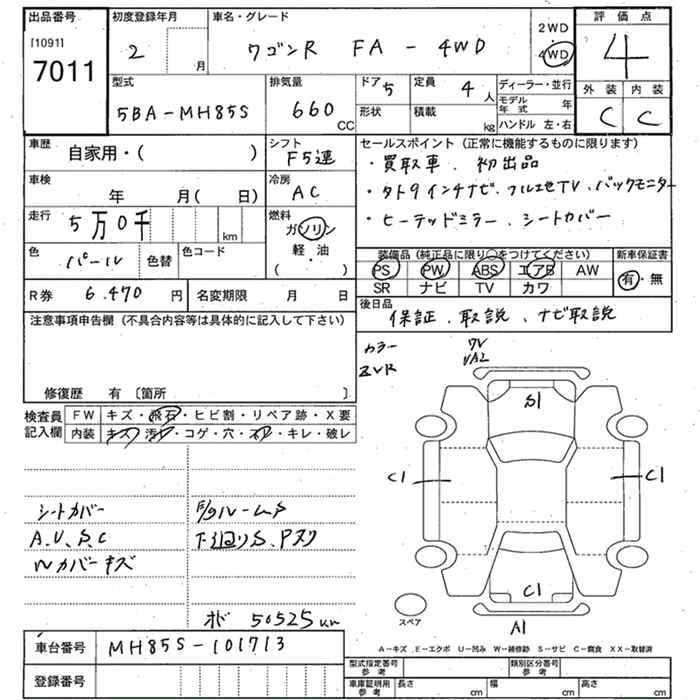 出品番号 初度登録年月 車名・グレード 2WD 評価点
[1091] 2 月 ワゴンR FA - 4WD 4WD 4
7011
型式 排気量 ドア 5 定員 4人 ディーラー・並行 外装 内装
5BA-MH85S 660 CC 形状 積載 kg モデル年式 年 C C
ハンドル 左・右
車歴 自家用・( ) シフト F5速 セールスポイント (正常に機能するものに限ります)
・買取車、初出品
車検 年 月( 日) 冷房 AC ・タト9インチナビ、フルセTV、バックモニター
走行 5万0千 km 燃料 ガソリン ・ヒーテッドミラー、シートカバー
軽・油
( )
色 パール 色替 色コード 装備品 (純正品に限り○をつけてください) 新車保証書
PS PW ABS エアB AW 有・無
R券 6.470 円 名変期限 月 日 SR ナビ TV カワ
注意事項申告欄 (不具合内容等は具体的に記入して下さい) 後日品
保証、取説、ナビ取説
カラー ZVR
修復歴 有 〔箇所 〕
検査員記入欄 FW キズ・飛石・ヒビ割・リペア跡・X要
内装 キズ・汚れ・コゲ・穴・スレ・キレ・破レ
S1
C1 C1
シートカバー
A.U、S、C 下廻りS、Pスリ
Wカバーキズ
C1
スペア A1
50525km
A-キズ E-エクボ U-凹み W-補修跡 S-サビ C-腐食 XX-取替済
車台番号 MH85S-101713
登録番号
型式指定番号 参考 類別区分番号 参考
車庫証明用 参考 長さ cm 幅 cm 高さ cm